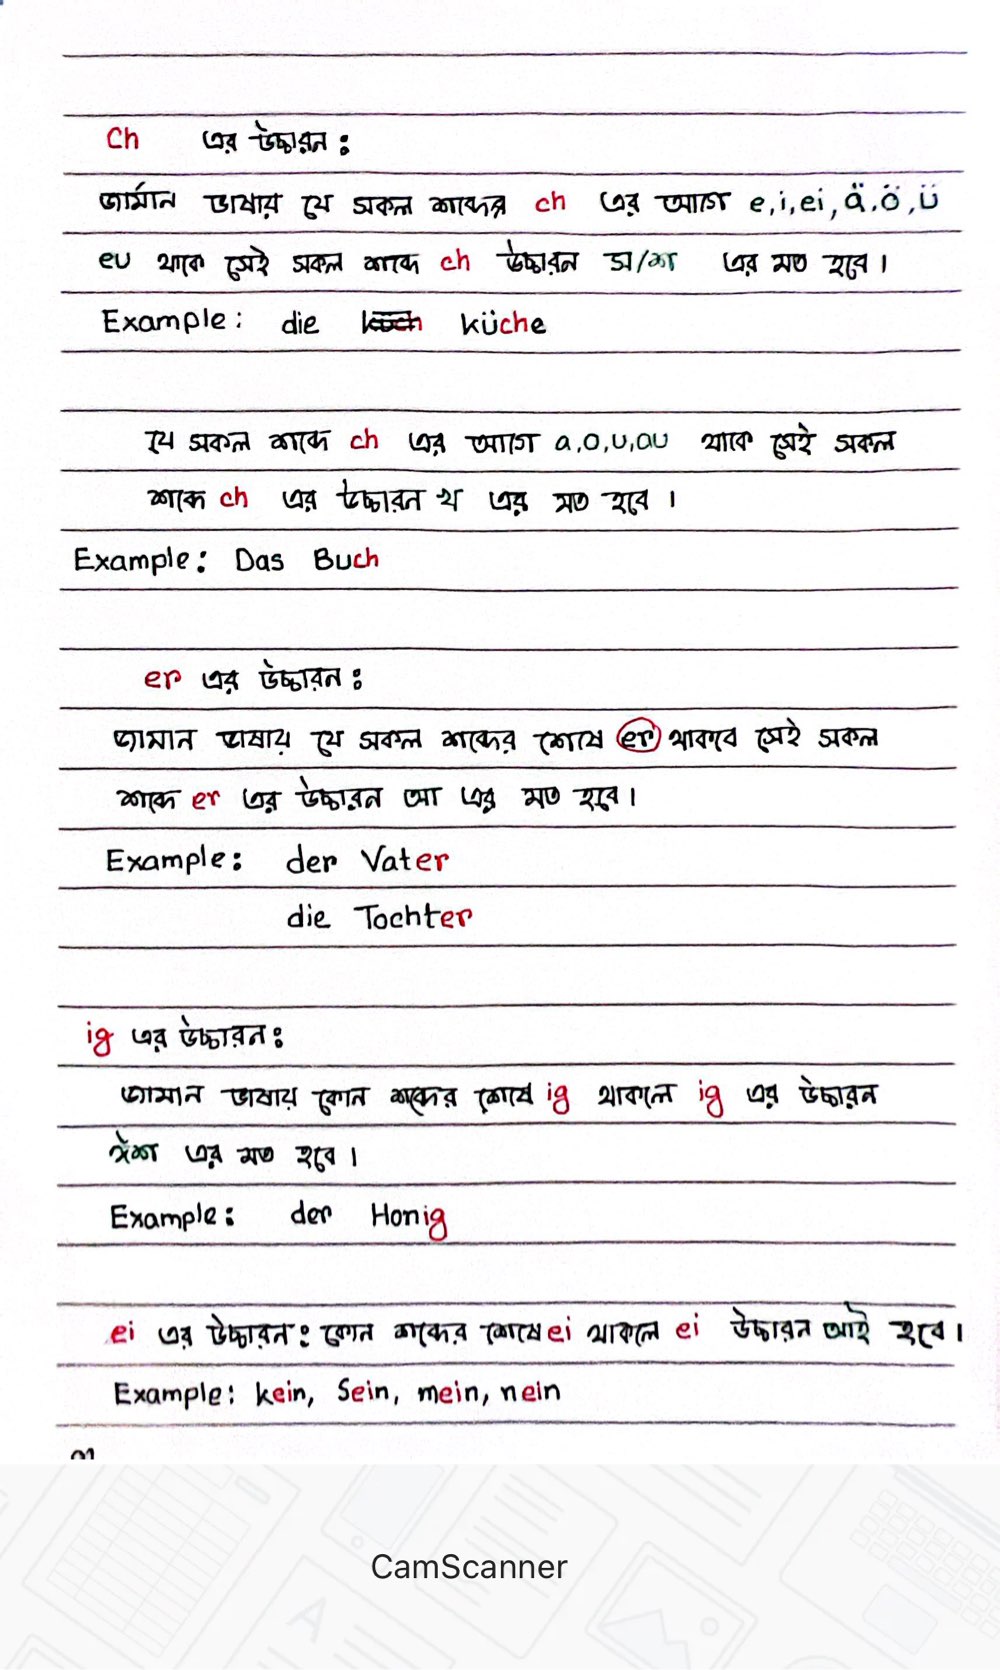 ch এর উচ্চারন :
জার্মান ভাষায় যে সকল শব্দের ch এর আগে e,i,ei,ä,ö,ü
eu থাকে সেই সকল শব্দে ch উচ্চারন স/শ এর মত হবে।
Example: die küche
যে সকল শব্দে ch এর আগে a,o,u,au থাকে সেই সকল
শব্দে ch এর উচ্চারন খ এর মত হবে।
Example: Das Buch
er এর উচ্চারন :
জামান ভাষায় যে সকল শব্দের শেষে er থাকবে সেই সকল
শব্দে er এর উচ্চারন আ এর মত হবে।
Example: der Vater
die Tochter
ig এর উচ্চারন:
জামান ভাষায় কোন শব্দের শেষে ig থাকলে ig এর উচ্চারন
এর মত হবে।
Example: der Honig
ei এর উচ্চারন: কোন শব্দের শেষে ei থাকলে ei উচ্চারন আই হবে।
Example: kein, Sein, mein, nein
CamScanner